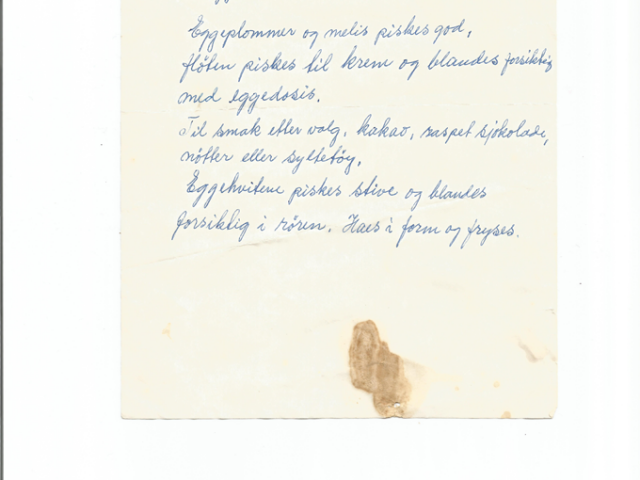 Eggeplommer og melis piskes god,
fløten piskes til krem og blandes forsiktig
med eggedosis.
Til smak etter valg, kakao, raspet sjokolade,
nøtter eller syltetøy.
Eggehvitene piskes stive og blandes
forsiktig i røren. Haes i form og fryses.